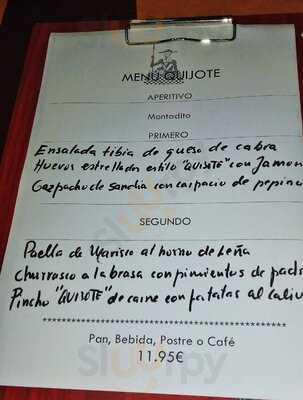 MENÚ QUIJOTE
APERITIVO
Montadito
PRIMERO
Ensalada tibia de queso de cabra
Huevos estrellados estilo "QUIJOTE" con Jamon
Gazpacho de Sandía con carpacio de pepino
SEGUNDO
Paella de Marisco al horno de Leña
Churrasco a la brasa con pimientos de pad
Pincho "QUIJOTE" de carne con patatas al caliu
****************************************
Pan, Bebida, Postre o Café
11.95€
sluurpy